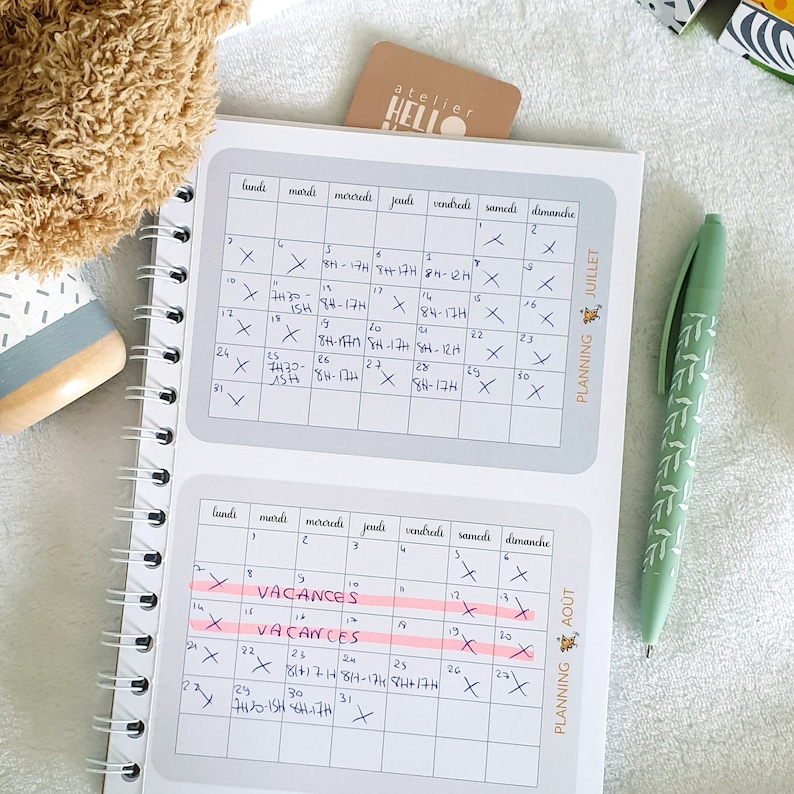 atelier
HELLO
lundi mardi mercredi jeudi vendredi samedi dimanche
1 X 2 X
3 X 4 X 5 8H-17H 6 8H-17H 7 8H-12H 8 X 9 X
10 X 11 7H30-15H 12 8H-17H 13 X 14 8H-17H 15 X 16 X
17 X 18 X 19 8H-17H 20 8H-17H 21 8H-12H 22 X 23 X
24 X 25 7H30-15H 26 8H-17H 27 X 28 8H-17H 29 X 30 X
31 X
PLANNING JUILLET
lundi mardi mercredi jeudi vendredi samedi dimanche
1 2 3 4 5 X 6 X
7 X 8 9 10 11 12 X 13 X
VACANCES
14 X 15 16 17 18 19 X 20 X
VACANCES
21 X 22 X 23 8H17H 24 8H-17H 25 8H17H 26 X 27 X
28 X 29 7H30-15H 30 8H-17H 31 X
PLANNING AOÛT